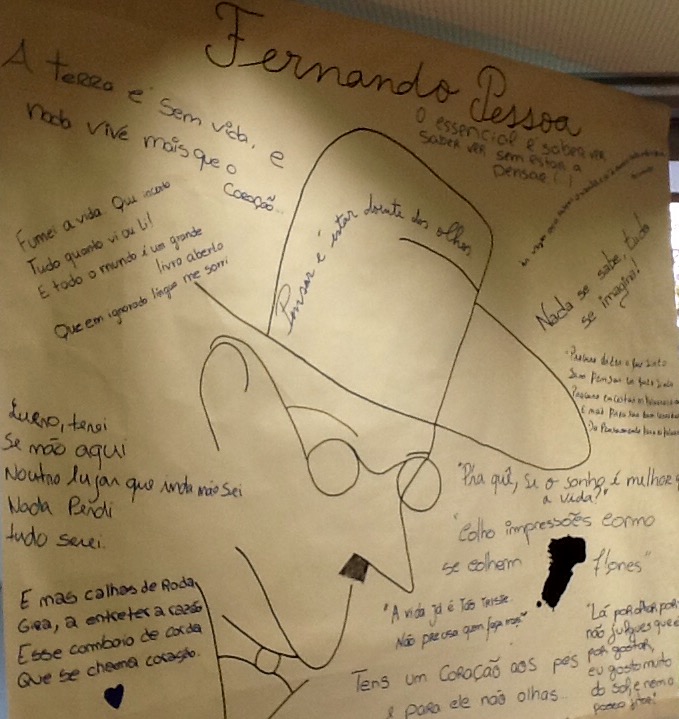 Fernando Pessoa
A terra é sem vida, e
nada vive mais que o
coração...
O essencial é saber ver
saber ver sem estar a
pensar!!
Fumei a vida. Que incerto
Tudo quanto vi ou li!
E todo o mundo é um grande
livro aberto
Que em ignorada língua me sorri
Pensar é estar doente dos olhos
Nada se sabe, tudo
se imagina!
"Procuro dizer o que sinto
Sem pensar em que o sinto
Procuro encostar as palavras
Quero, terei
Se não aqui
Noutro lugar que inda não sei
Nada Perdi
tudo serei.
"Pra quê, se o sonho é melhor
a vida?"
"Colho impressões como
se colhem flores"
E mas calhas de Roda
Gira, a entreter a razão
Esse comboio de corda
Que se chama coração.
"A vida já é tão triste.
Não precisa quem faça mas"
"Lá por olhar por
não julgues que é
por gostar,
eu gosto muito
do sol e nem o
posso fitar!"
Tens um coração aos pés
e para ele não olhas...